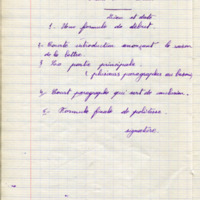 Lieu et date
1. Une formule de début.
2. Courte introduction annonçant la raison
de la lettre
3. La partie principale :
plusieurs paragraphes au besoin,
4. Court paragraphe qui sert de conclusion.
5. Formule finale de politesse
signature.